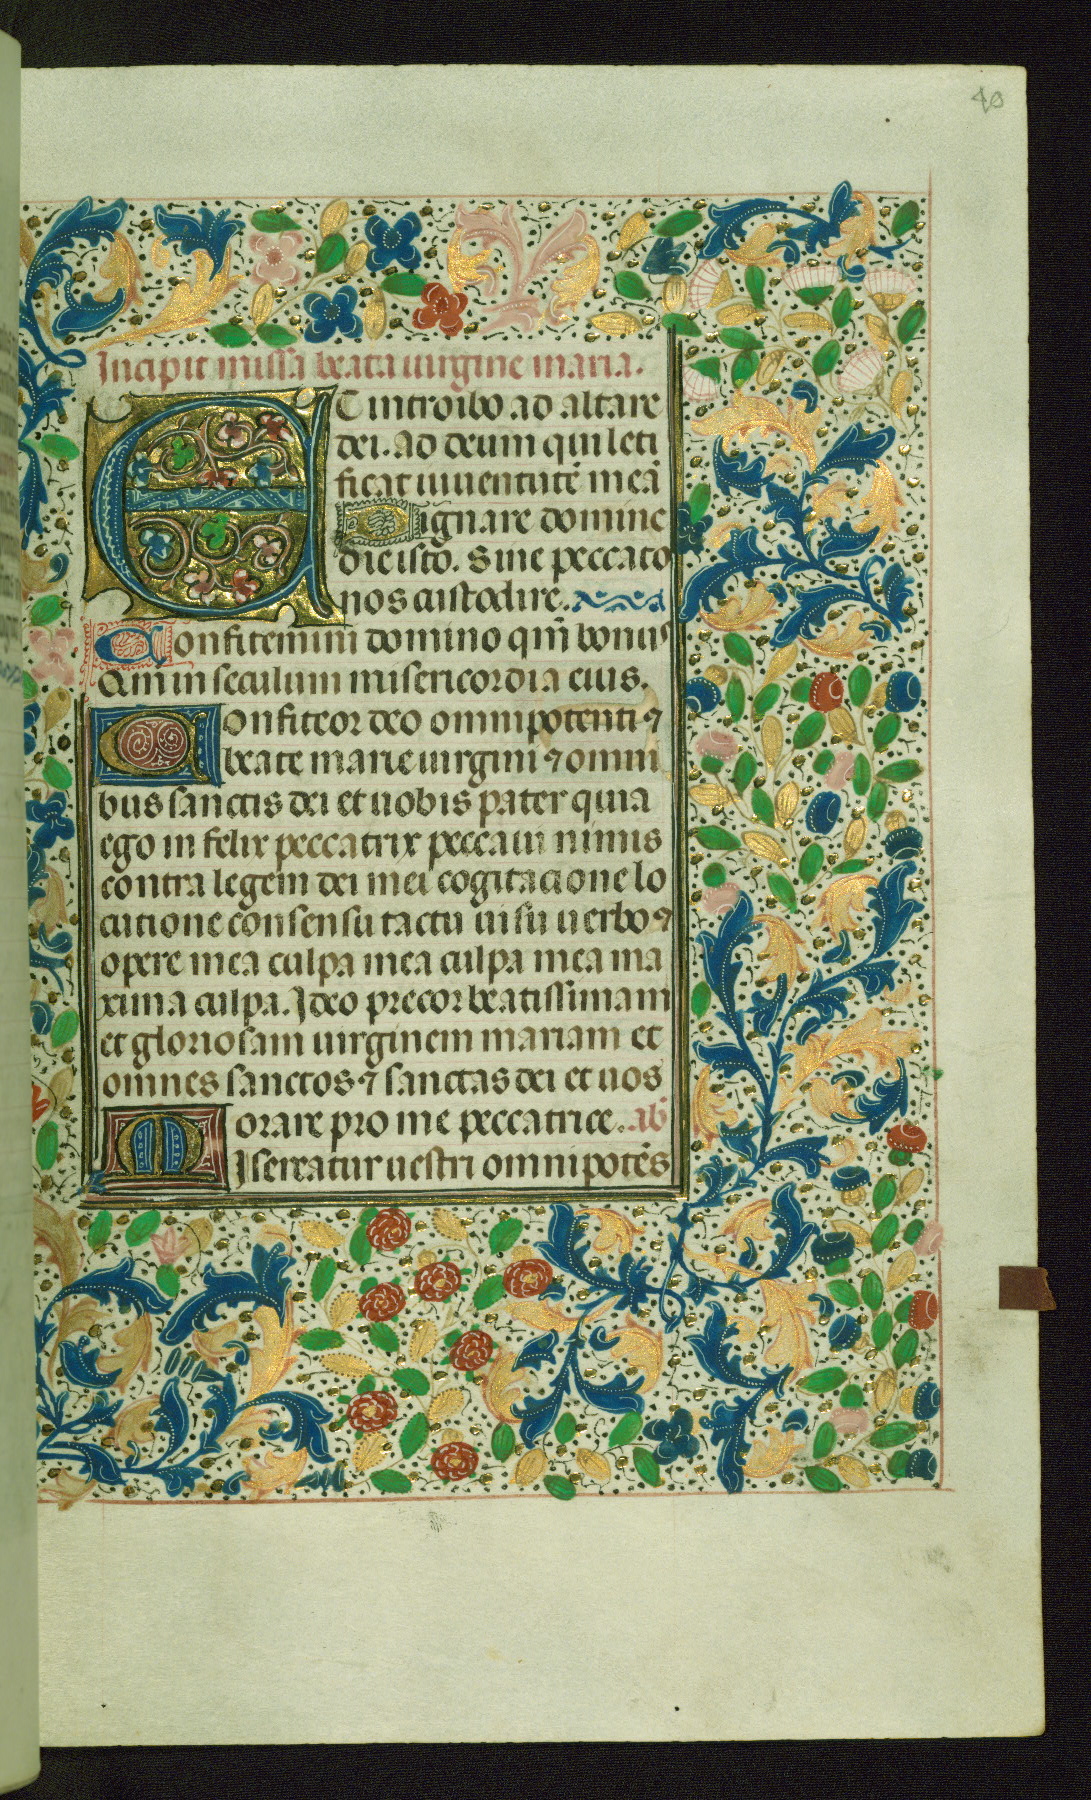 40
Incipit missa beata uirgine maria.
ET introibo ad altare
dei. Ad deum qui leti
ficat iuuentutē meā
Dignare domine
die isto. Sine peccato
nos custodire.
Confitemini domino qm̄ bonus
Qm̄ in seculum misericordia eius.
Confiteor deo omnipotenti ⁊
beate marie uirgini ⁊ omni
bus sanctis dei et uobis pater quia
ego in felix peccatrix peccaui nimis
contra legem dei mei cogitacione lo
cutione consensu tactu uisu uerbo ⁊
opere mea culpa mea culpa mea ma
xima culpa. Ideo precor beatissimam
et gloriosam uirginem mariam et
omnes sanctos ⁊ sanctas dei et uos
orare pro me peccatrice. ab̄
MIsereatur uestri omnipotēs